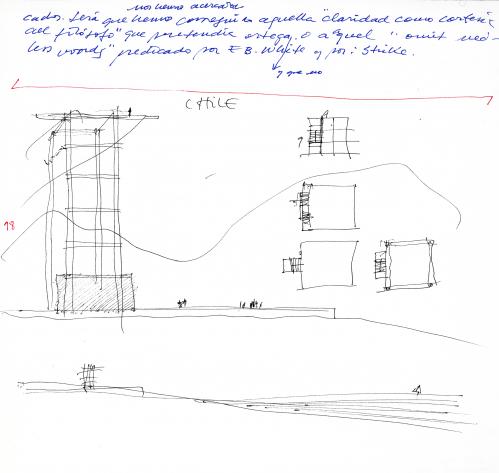 nos hemos acercado
cados. Será que hemos conseguido aquella "claridad como cortesía
del filósofo" que pretendía Ortega, o aquel "omit
words" predicado por E B. White y por
y que no
CHILE
18